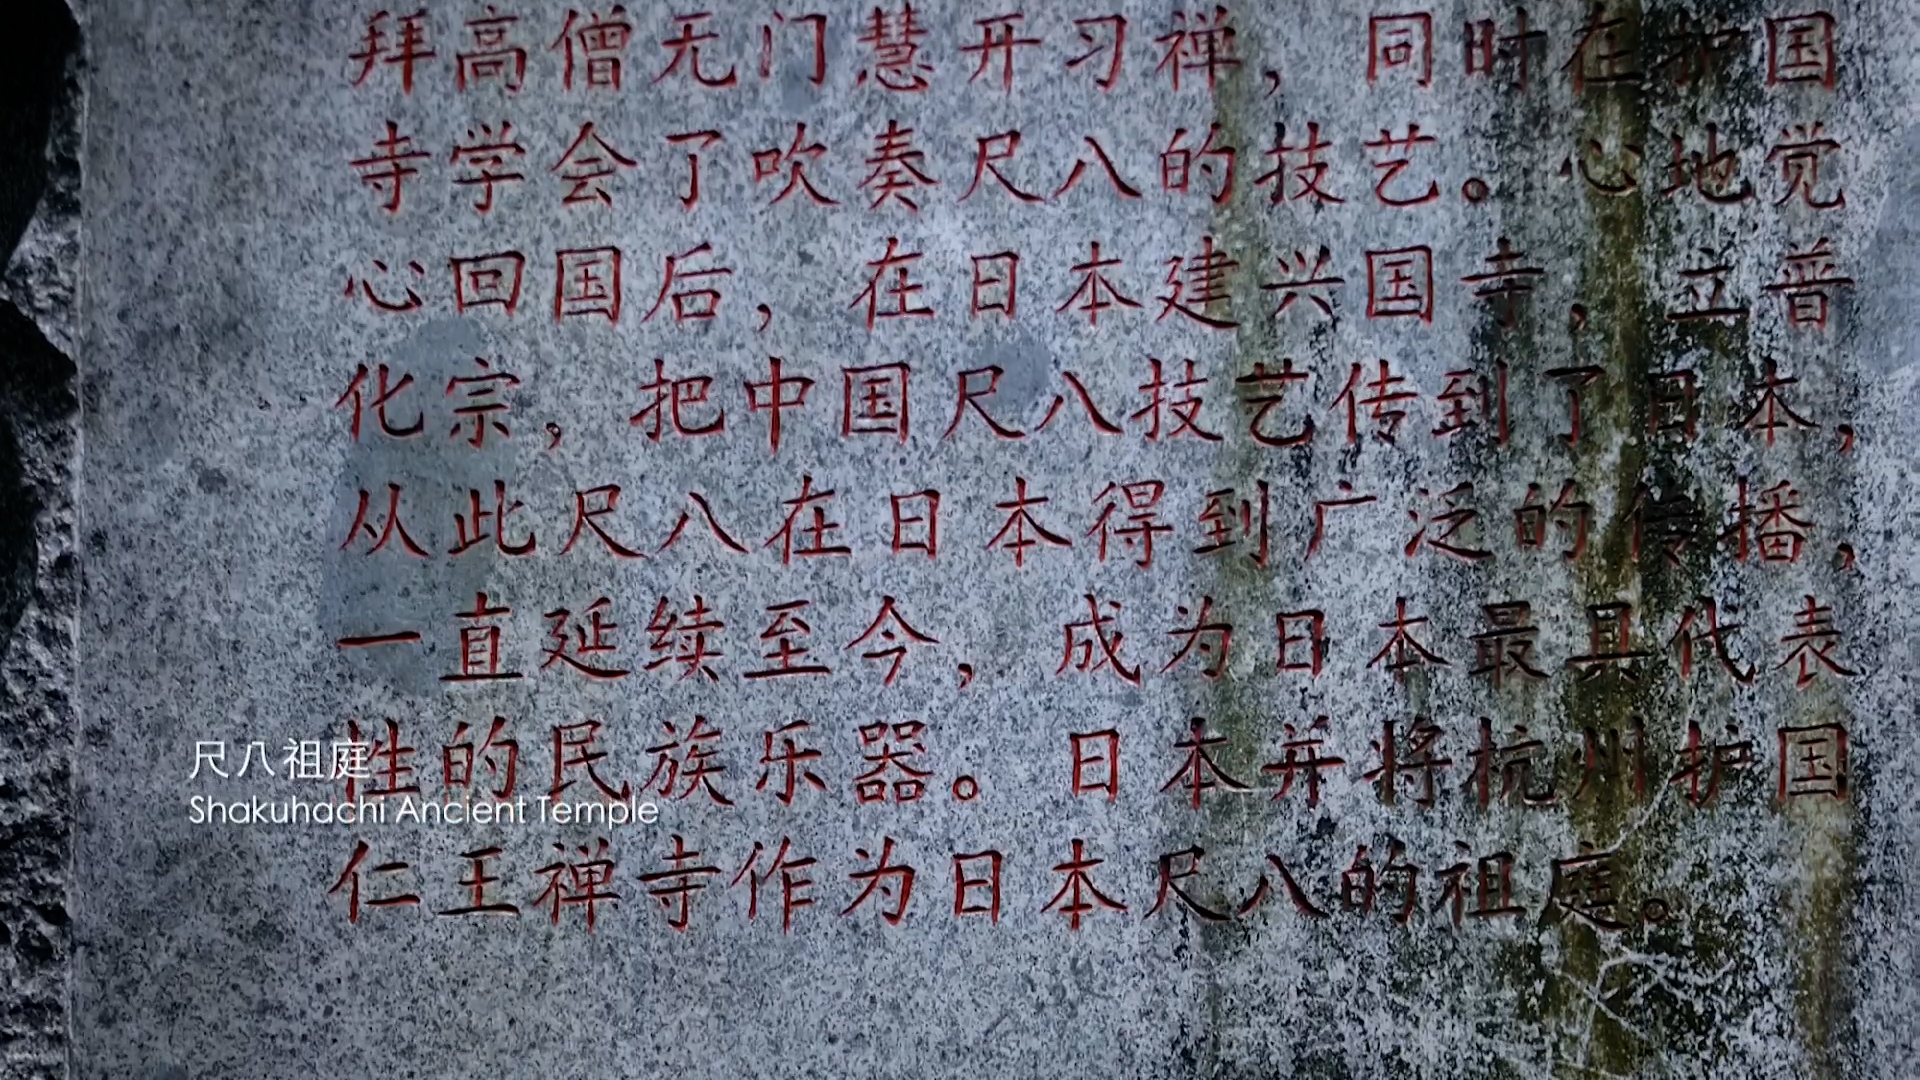 拜高僧无门慧开习禅，同时在护国
寺学会了吹奏尺八的技艺。心地觉
心回国后，在日本建兴国寺，立普
化宗，把中国尺八技艺传到了日本，
从此尺八在日本得到广泛的传播，
一直延续至今，成为日本最具代表
性的民族乐器。日本并将杭州护国
仁王禅寺作为日本尺八的祖庭。
尺八祖庭
Shakuhachi Ancient Temple